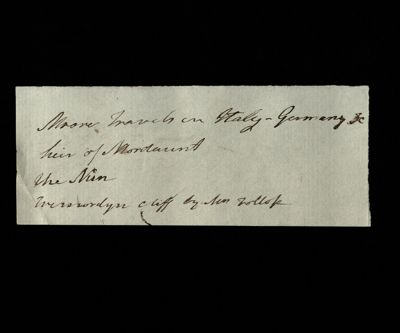 Moore Travels in Italy - Germany &c
heir of Mordaunt
the Nun
cliff by Mrs Trollop